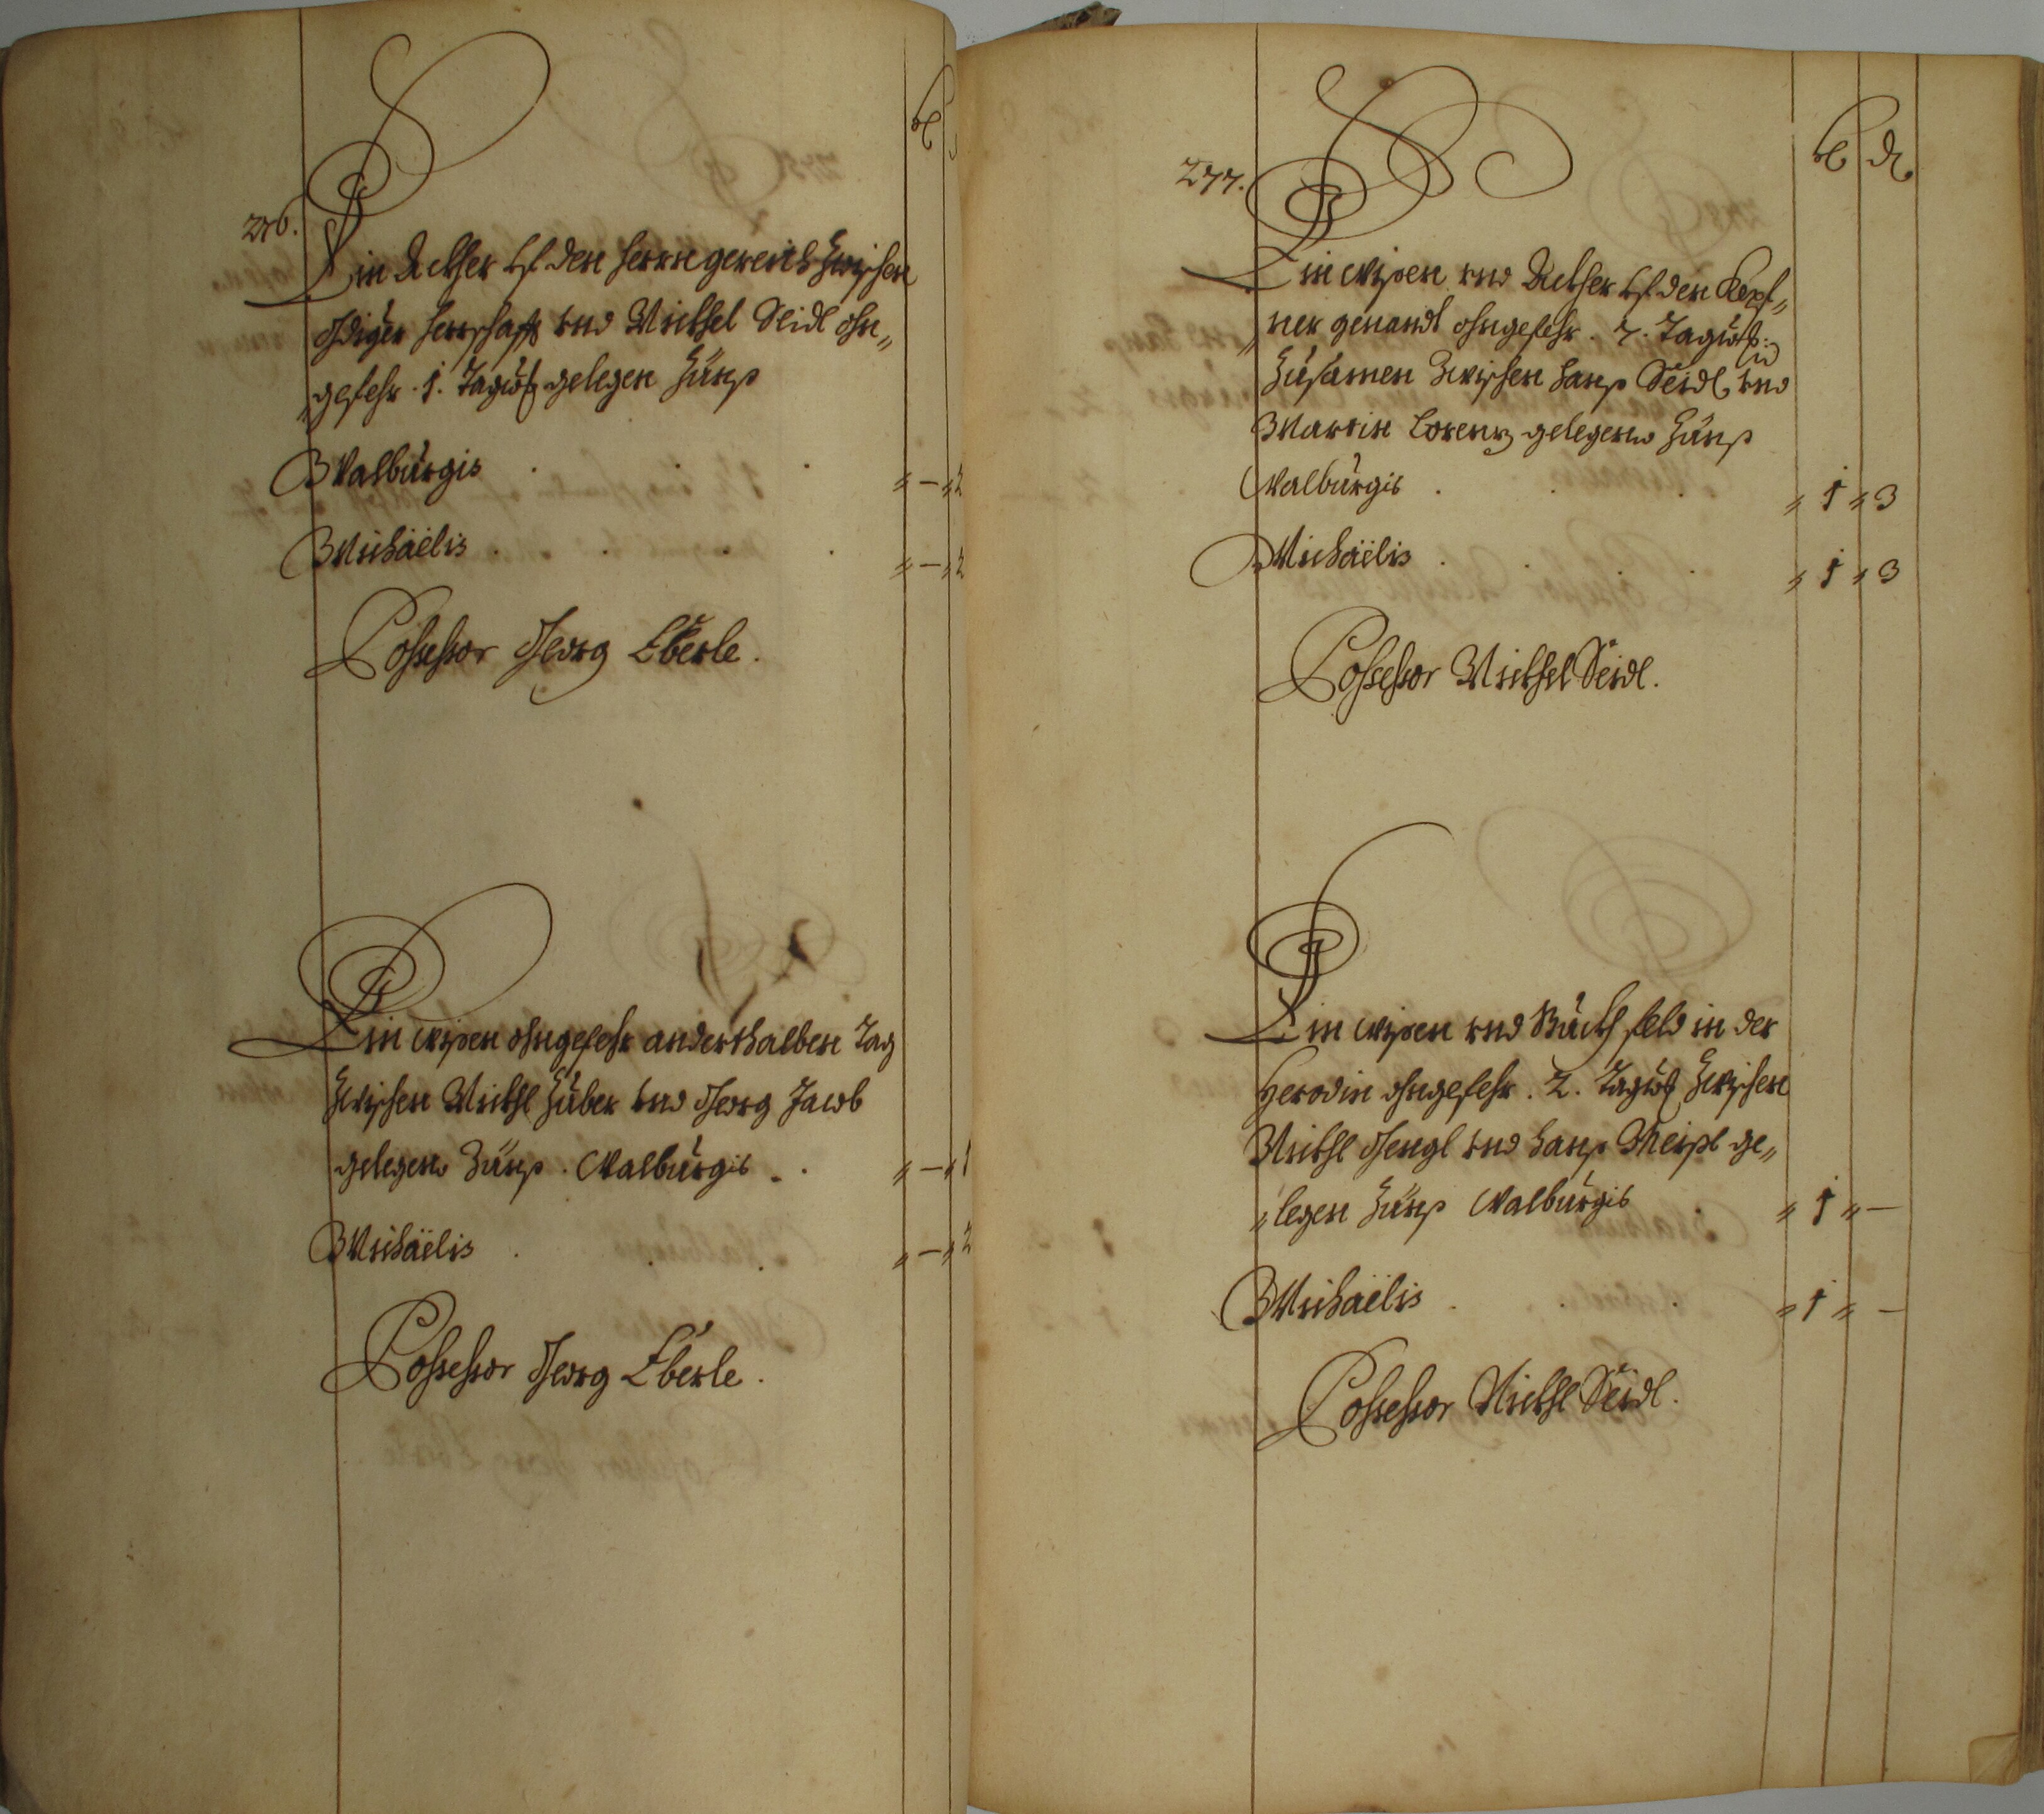 276.
Ein Ackher uf den Herrngereith zwischen
gdiger Herrschafft und Michel Seidl ohn„
„gefehr . 1. Tagw: gelegen Zünß
Walburgis . . . „ — „ 2
Michaëlis . . . . „ — „ 2
Possessor Georg Eberle .
Ein wißen ohngefehr anderthalben Tag
zwischen Michl Huber und Georg Jacob
gelegen Zünß . Walburgis . . „ — „ 1
Michaëlis . . . „ — „ 2
Possessor Georg Eberle .
277.
Ein wißen und Ackher uf den
„ner genandt ohngefehr . 7. Tagw:
Zusamen Zwischen Hanß Seidl und
Martin Lorenz gelegen Zünß
Walburgis . . . „ 1 „ 3
Michaëlis . . . „ 1 „ 3
Possessor Michel Seidl .
Ein wißen und feld in der
ohngefehr . 2. Tagw: Zwischen
Michl und Hanß Meißl ge„
„legen Zünß Walburgis „ 1 „ —
Michaëlis . . . „ 1 „ —
Possessor Michl Seidl .